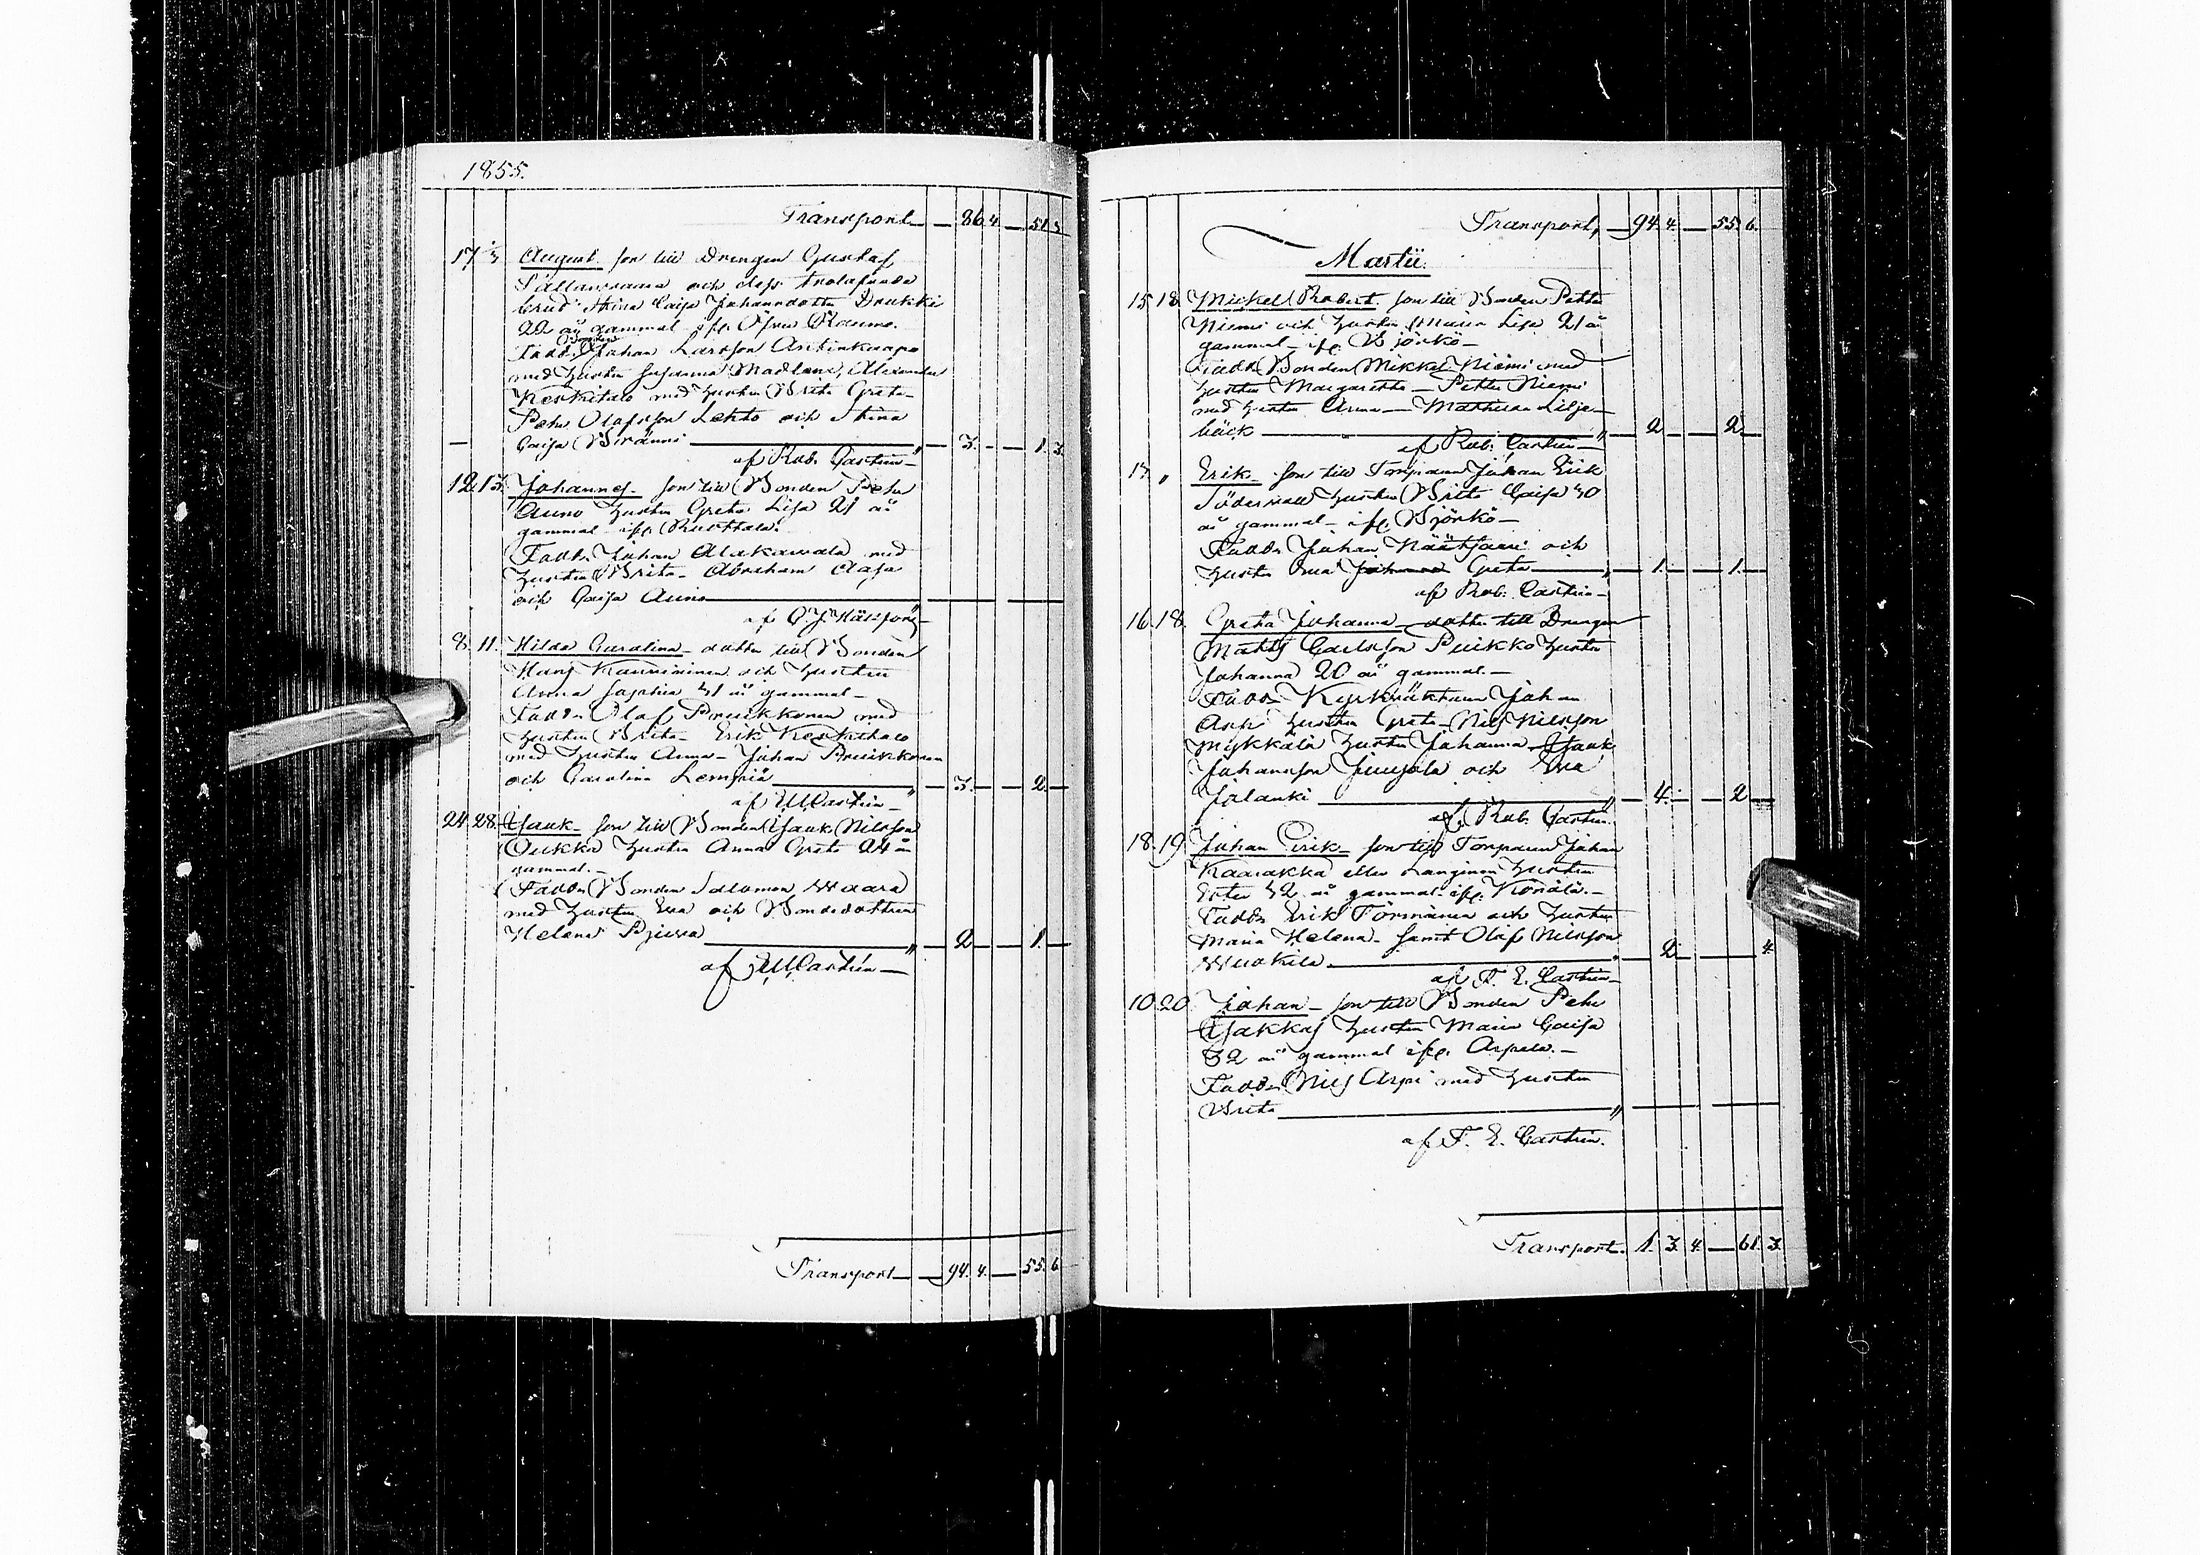 1855.
Transport — 86 4. — 51 3
17 August. son till Drengen Gustaf
och dess trolofvade
brud Stina Caisa Johansdotter Drukki
22 år gammal ifr. Öfvre Raumo.
Fadd. Bonden Johan Larsson Antinkaapo
med hustru Susanna Madlena, Alexander
Keskitalo med hustru Brita Greta
Pehr Olofsson Lehto och Stina
Caisa — 3. — 1. 3.
af Rob. Castrén
12. 13. Johannes. son till Bonden Pehr
Auno hustru Greta Lisa 21 år
gammal ifr.
Fadd. Johan Alakawala med
hustru Brita. Abraham
och Caisa Auno
af
8. 11. Hilda Carolina. dotter till Bonden
Hans och hustru
Anna Sophia 31 år gammal
Fadd. Olof Pruikkonen med
hustru Brita. Erik Keskitalo
med hustru Anna. Johan Pruikkonen
och Carolina — 3. — 2. —
af M Castrén
24. 28. Isaak. son till Bonden Isaak Nilsson
Oukka hustru Anna Greta 24 år
gammal.
Fadd. Bonden Salomon Waara
med hustru Eva och Bondedottren
Helena — 2 — 1. —
af M Castrén
Transport — 94. 4. — 55. 6
Transport, — 94. 4. — 55. 6.
Martii.
15. 18. Mickel Robert. son till Bonden Petter
Niemi och hustru Maria Lisa 21 år
gammal ifr. Björkö
Fadd. Bonden Mikkel Niemi med
hustru Margaretha — Petter Niemi
med hustru Anna — Mathias Lilje-
bäck — 2 — 2 —
af Rob. Castrén
17. " Erik. son till Torparen Johan Erik
Södervall hustru Brita Caisa 30
år gammal ifr. Björkö
Fadd. Johan och
hustru Eva Greta — 1. — 1. —
af Rob. Castrén
16. 18. Greta Johanna — dotter till Drengen
Matts Carlsson Puikko hustru
Johanna 20 år gammal.
Fadd. Kyrkväktaren Johan
Arpi hustru Greta — Nils Nilsson
Mykkälä hustru Johanna — Isaak
Johansson Juujola och Eva
Jolanki — 4. — 2 —
af Rob. Castrén.
18. 19. Johan Eric — son till Torparen Johan
Kaarakka eller Langinen hustru
32 år gammal ifr.
Fadd. Erik Törmänen och hustru
Maria Helena. samt Olof Nilsson
— 2 — 4.
af F. E. Castrén
10. 20. Johan — son till Bonden Pehr
Isakkas hustru Maria Caisa
32 år gammal ifr. Arpela.
Fadd. Nils Arpi med hustru
Brita
af F. E. Castrén.
Transport. 1. 3. 4. — 61. 3.